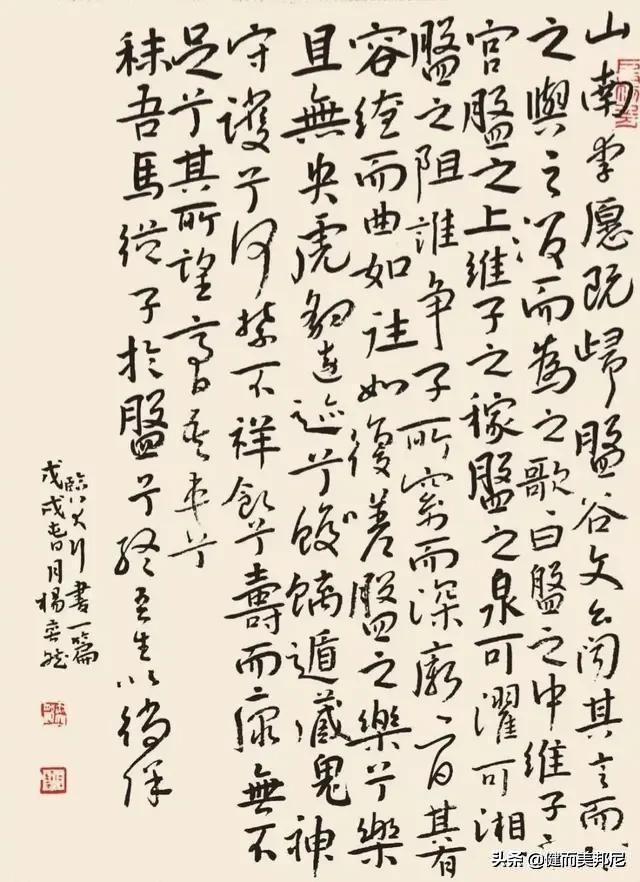 山南李愿既歸盤谷文公聞其言而
之與之酒而為之歌曰盤之中維子之
宮盤之上維子之稼盤之泉可濯可湘
盤之阻誰争子所窈而深廓其有
容繞而曲如往如復嗟盤之樂兮樂
且無央虎豹遠迹兮蛟螭遁藏鬼神
守護兮呵禁不祥飲兮壽而康無不
足兮其所望膏吾車兮
秣吾馬從子於盤兮終吾生以徜徉
臨八大行書一篇
戊戌春月楊奕
头条 @健而美邦尼